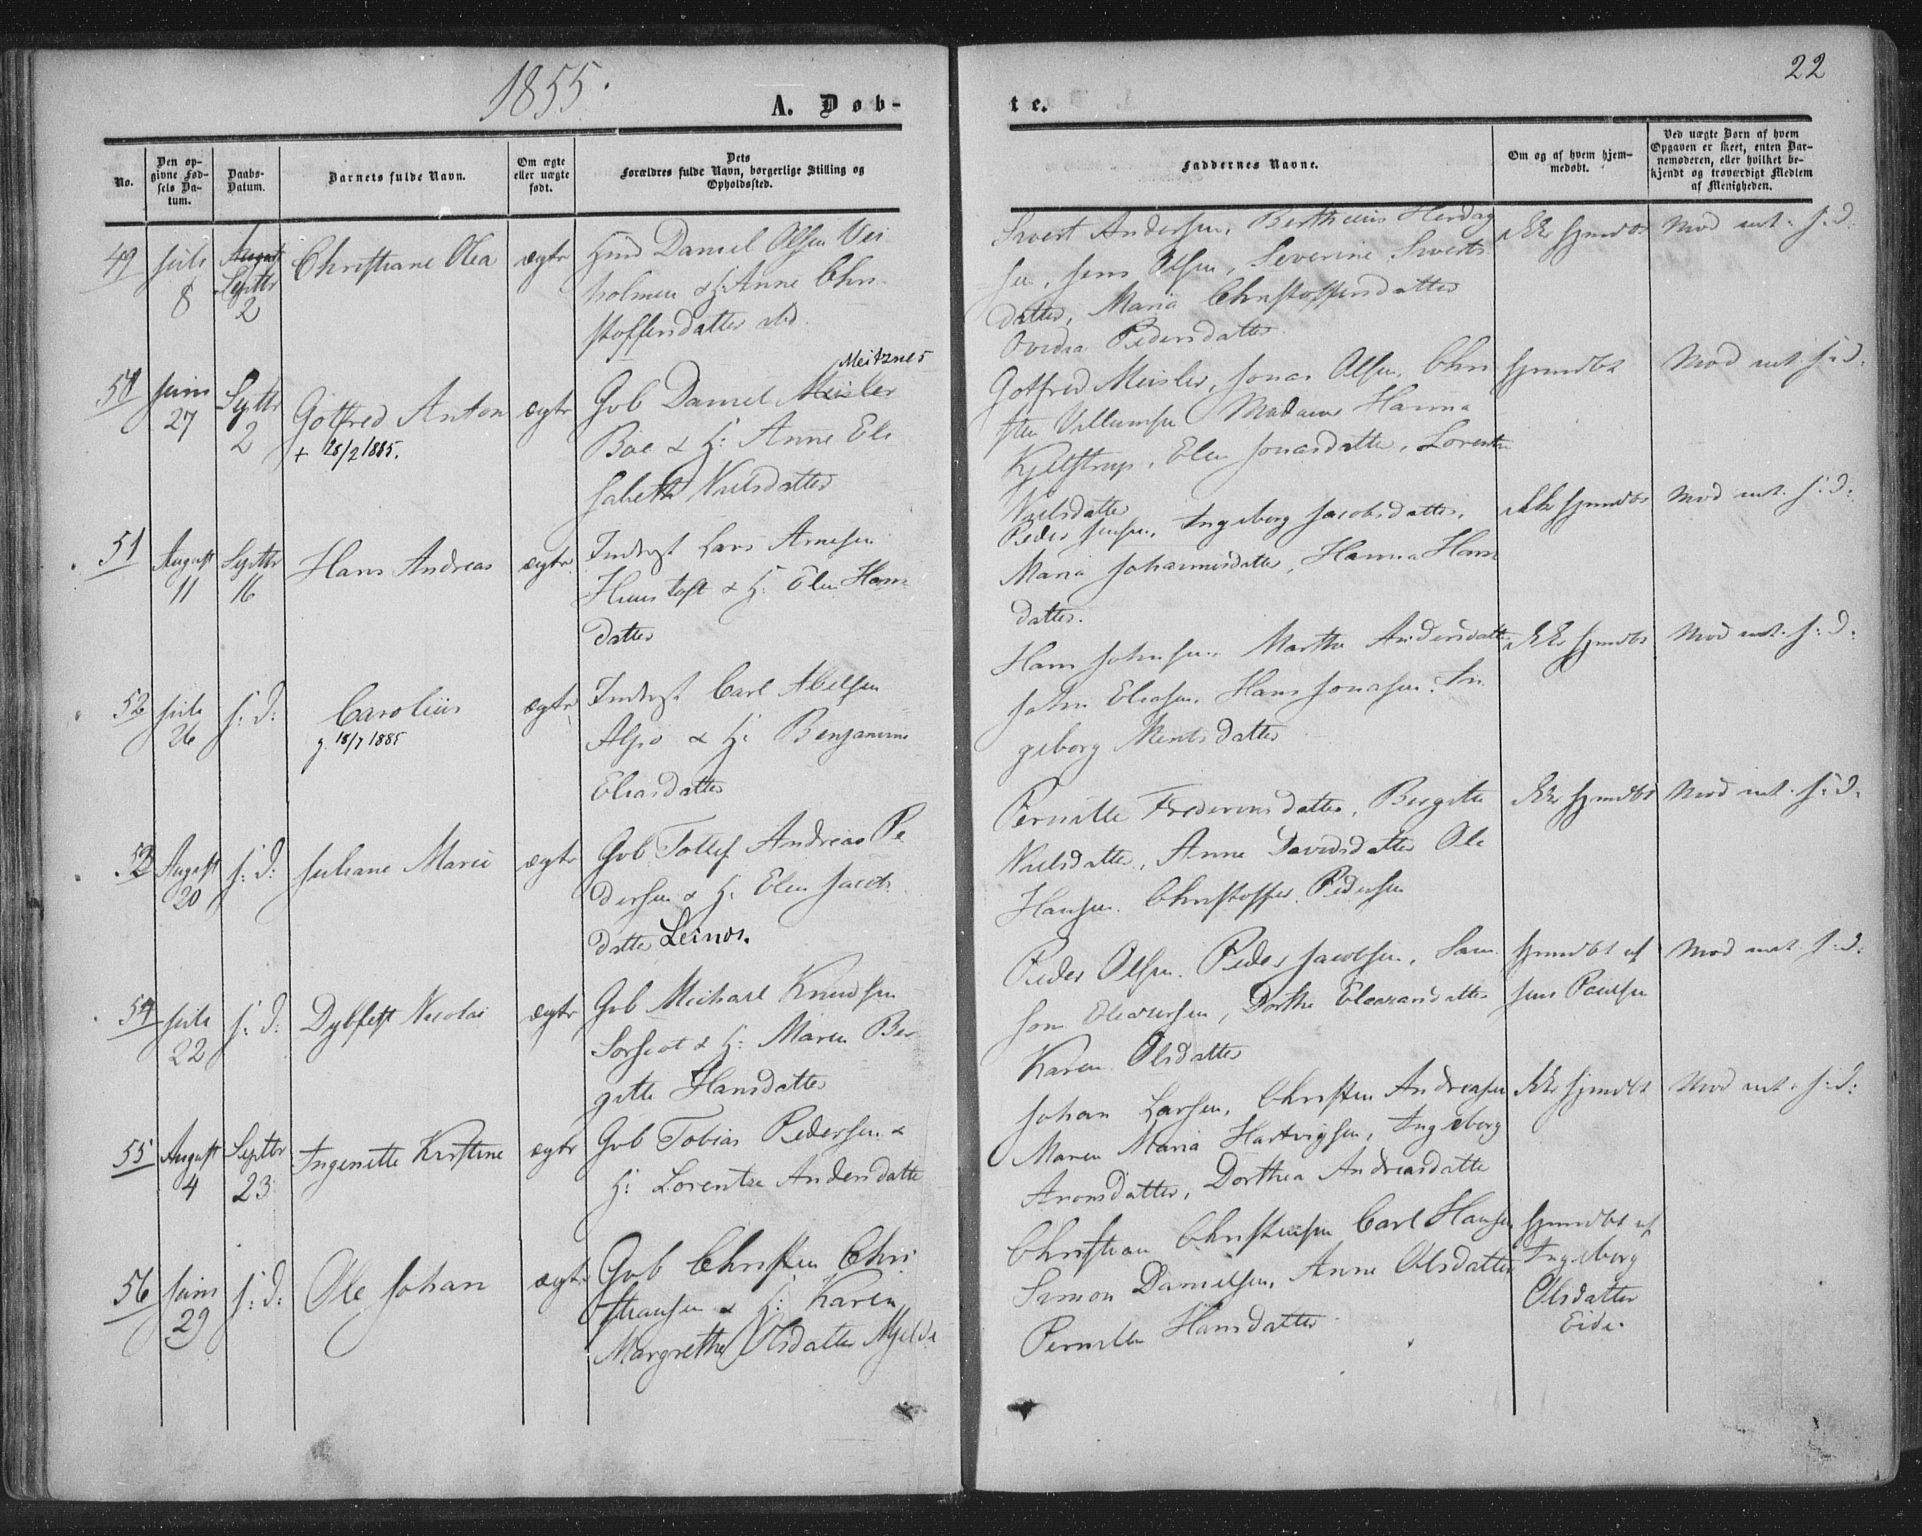 1855.
22
A. Døb-
te.
No.
Den op-
givne Fød-
sels Da-
tum.
Daabs-
Datum.
Barnets fulde Navn.
Om ægte
eller uægte
født.
Dets
Forældres fulde Navn, borgerlige Stilling og
Opholdssted.
Faddernes Navne.
Om og af hvem hjem-
medøbt.
Ved uægte Børn af hvem
Opgaven er skeet, enten Bar-
nemoderen, eller hvilket be-
kjendt og troværdigt Medlem
af Menigheden.
49
Juli
8
August
Septbr
2
Christiane Olea
ægte
Daniel Olsen Vei
holmen & H: Anne Chri
stoffersdatter
Sivert Andersen, Bertheus Herdag
sen, Jens Olsen, Severine Siverts
datter, Maria Christoffersdatter
Ovedia Pedersdatter
ikke hjmdbt
Mod. ant. s: d:
50
Juni
27
Septbr
2
Gotfred Anton
+ 28/2 1885.
ægte
Meitzner
Gvb Daniel Meisler
Boe & H: Anne Eli
sabeth Nielsdatter
Gotfred Meisler, Jonas Olsen, Chri
sten Villumsen Madame Hanna
Kjelstrup, Elen Jonasdatter, Lorentze
Nielsdatter
hjmdbt
Mod ant. s: d:
51
August
11
Septbr
16
Hans Andreas
ægte
Inderst Lars Arnesen
Huustoft & H: Elen Hans
datter
Peder Jensen, Ingeborg Jacobsdatter,
Maria Johannesdatter, Hanna Hans
datter.
ikke hjmdbt
Mod ant. s: d:
52
Juli
26
s: d:
Carolius
g. 18/7 1885
ægte
Inderst Carl Abelsen
Alsiø & H: Benjamine
Eliasdatter
Hans Johnsen, Martha Andersdatter
John Eliasen, Hans Jonasen, In
geborg Mentsdatter
ikke hjmdbt
Mod ant. s: d:
53
August
20
s: d:
Juliane Marie
ægte
Gvb Tollef Andreas Pe
dersen & H: Elen Jacobs
datter Leinæs.
Pernille Frederiksdatter, Birgitte
Nielsdatter, Anne Davidsdatter Ole
Hansen, Christoffer Pedersen
ikke hjmdbt
Mod ant. s: d:
54
Juli
22
s: d:
Dybfest Nicolai
ægte
Gvb Michael Knudsen
Sørfiot & H: Maren Ber
gitte Hansdatter
Peder Olsen, Peder Jacobsen, Sam
son Eleasersen, Dorthe Eleazarsdatter
Karen Olsdatter
hjmdbt af
Jens Paulsen
Mod ant. s: d:
55
August
4
Septbr
23
Ingenette Kirstine
ægte
Gvb Tobias Pedersen &
H: Lorentze Andersdatter
Johan Larsen, Christen Andreasen
Maren Maria Hartvigsen, Ingeborg
Aronsdatter, Dorthea Andreasdatter
ikke hjmdbt
Mod ant. s: d:
56
Juni
29
s: d:
Ole Johan
ægte
Gvb Christen Chri
stiansen & H: Karen
Margrethe Olsdatter Mjelde
Christian Christensen Carl Hansen
Simon Danielsen, Anne Olsdatter
Pernille Hansdatter
hjmdbt af
Ingeborg
Olsdatter
Eide.